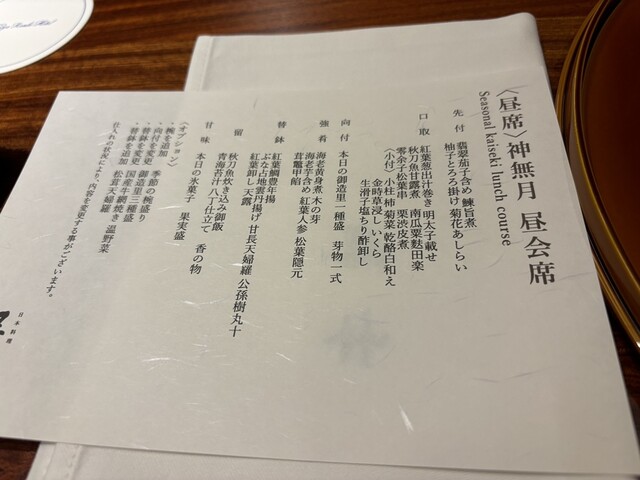 〈昼席〉神無月 昼会席
Seasonal kaiseki lunch course
先 付 翡翠茄子含め 鰊旨煮
柚子とろろ掛け 菊花あしらい
口 取 紅葉葱出汁巻き 明太子載せ
秋刀魚甘露煮 南瓜粟麩田楽
零余子松葉串 栗渋皮煮
〈小付〉小柱柿 菊菜 乾酪白和え
金時草浸し いくら
生滑子塩ちり酢卸し
向 付 本日の御造里一種盛 芽物一式
強 肴 海老黄身煮 木の芽
海老芋含め 紅葉人参 松葉隠元
茸鼈甲餡
替 鉢 紅葉鯛豊年揚
ぶな占地雲丹揚げ 甘長天婦羅 公孫樹丸十
紅葉卸し 天露
留 秋刀魚炊き込み御飯
青海苔汁八丁仕立て 香の物
甘 味 本日の氷菓子 果実盛
〈オプション〉
・椀を追加 季節の椀盛り
・向付を変更 御造里三種盛
・替鉢を変更 国産牛網焼き 温野菜
・替鉢を追加 松茸天婦羅
仕入れの状況により、内容を変更する事がございます。
日本料理